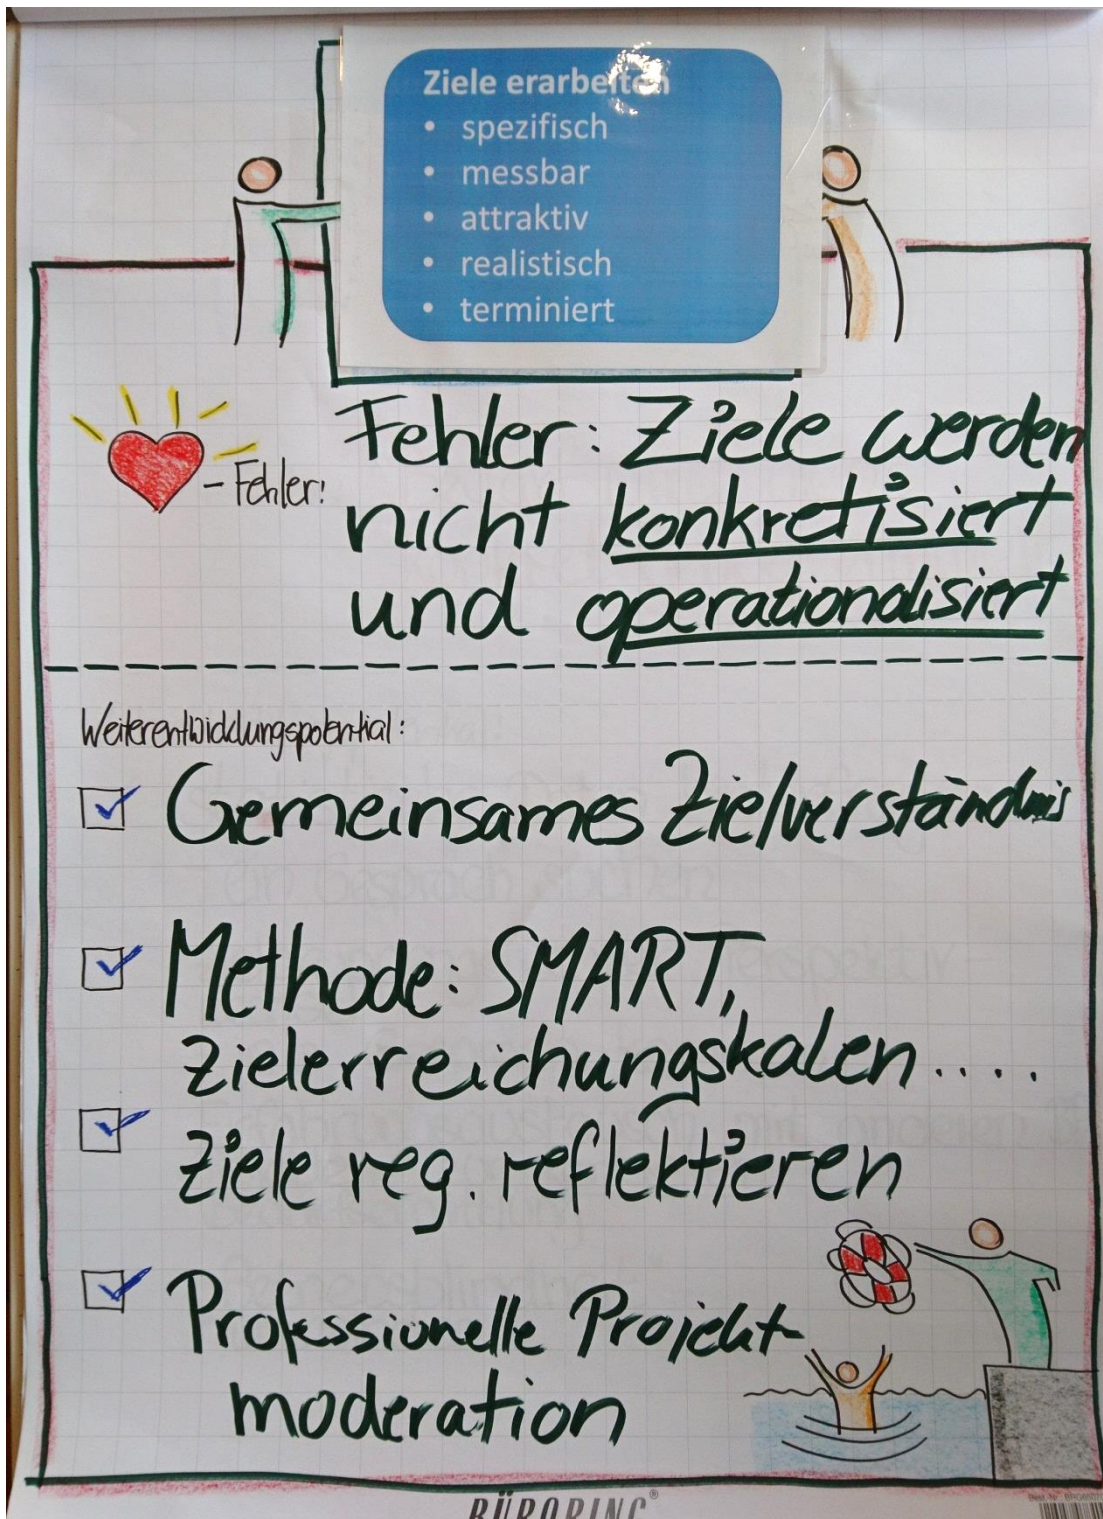 Ziele erarbeiten
• spezifisch
• messbar
• attraktiv
• realistisch
• terminiert
- Fehler!
Fehler: Ziele werden
nicht konkretisiert
und operationalisiert
Weiterentwicklungspotential:
Gemeinsames Zielverständnis
Methode: SMART,
Zielerreichungskalen....
Ziele reg. reflektieren
Professionelle Projekt-
moderation
BÜRORING®